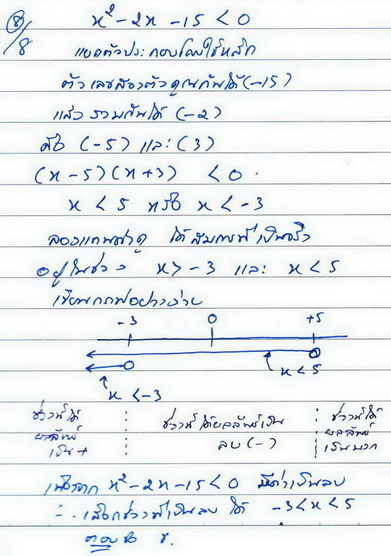 8/8
x² - 2x - 15 < 0
แยกตัวประกอบโดยใช้หลัก
ตัวเลขสองตัวคูณกันได้ (-15)
แล้วรวมกันได้ (-2)
คือ (-5) และ (3)
(x - 5)(x + 3) < 0
x < 5 หรือ x < -3
ลองแทนค่าดู ได้สมการที่เป็นจริง
อยู่ในช่วง x > -3 และ x < 5
เขียนกราฟอย่างง่าย
-3 0 +5
x < 5
x < -3
ช่วงนี้ได้ผลลัพธ์เป็น +
ช่วงนี้ได้ผลลัพธ์เป็นลบ (-)
ช่วงนี้ได้ผลลัพธ์เป็นบวก
เนื่องจาก x² - 2x - 15 < 0 มีค่าเป็นลบ
∴ เลือกช่วงที่เป็นลบ ได้ -3 < x < 5
ตอบข้อ ข.